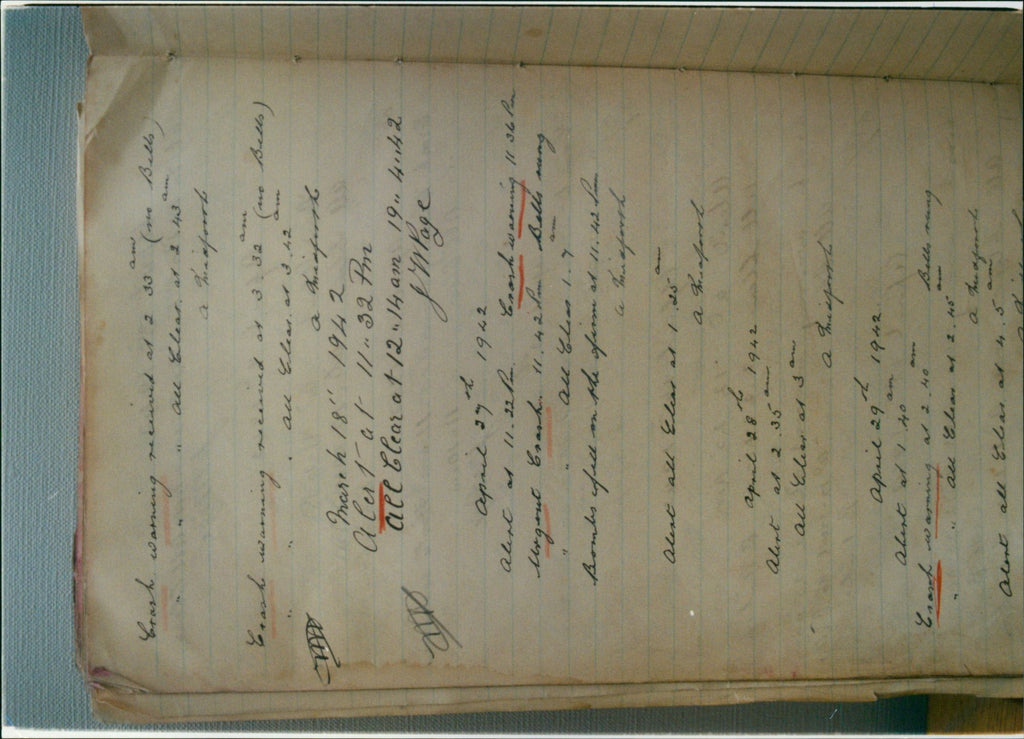 Crash warning received at 2 33 am (no Bells)
" " " all Clear. at 2.43 am
a Midforth
Crash warning received at 3 32 am (no Bells)
" " . all Clear. at 3.42 am
a Midforth
March 18" 1942
Alert at 11"32 Pm
all Clear at 12"14 am 19"4"42
J W Page
April 27th 1942
Alert at 11.22 Pm. Crash warning 11.36 Pm
Urgent Crash. 11.42 Pm Bells rung
" " all Clear 1.7 am
Bombs fell on the Airm at 11.42 Pm
a Midforth
Alert all Clear at 1.25 am
a Midforth
April 28th 1942
Alert at 2.35 am
all Clear at 3 am
a Midforth
April 29th 1942
Alert at 1.40 am
Crash warning at 2.40 am Bells rung
" " all Clear at 2.45 am
a Midforth
Alert all Clear at 4.5 am